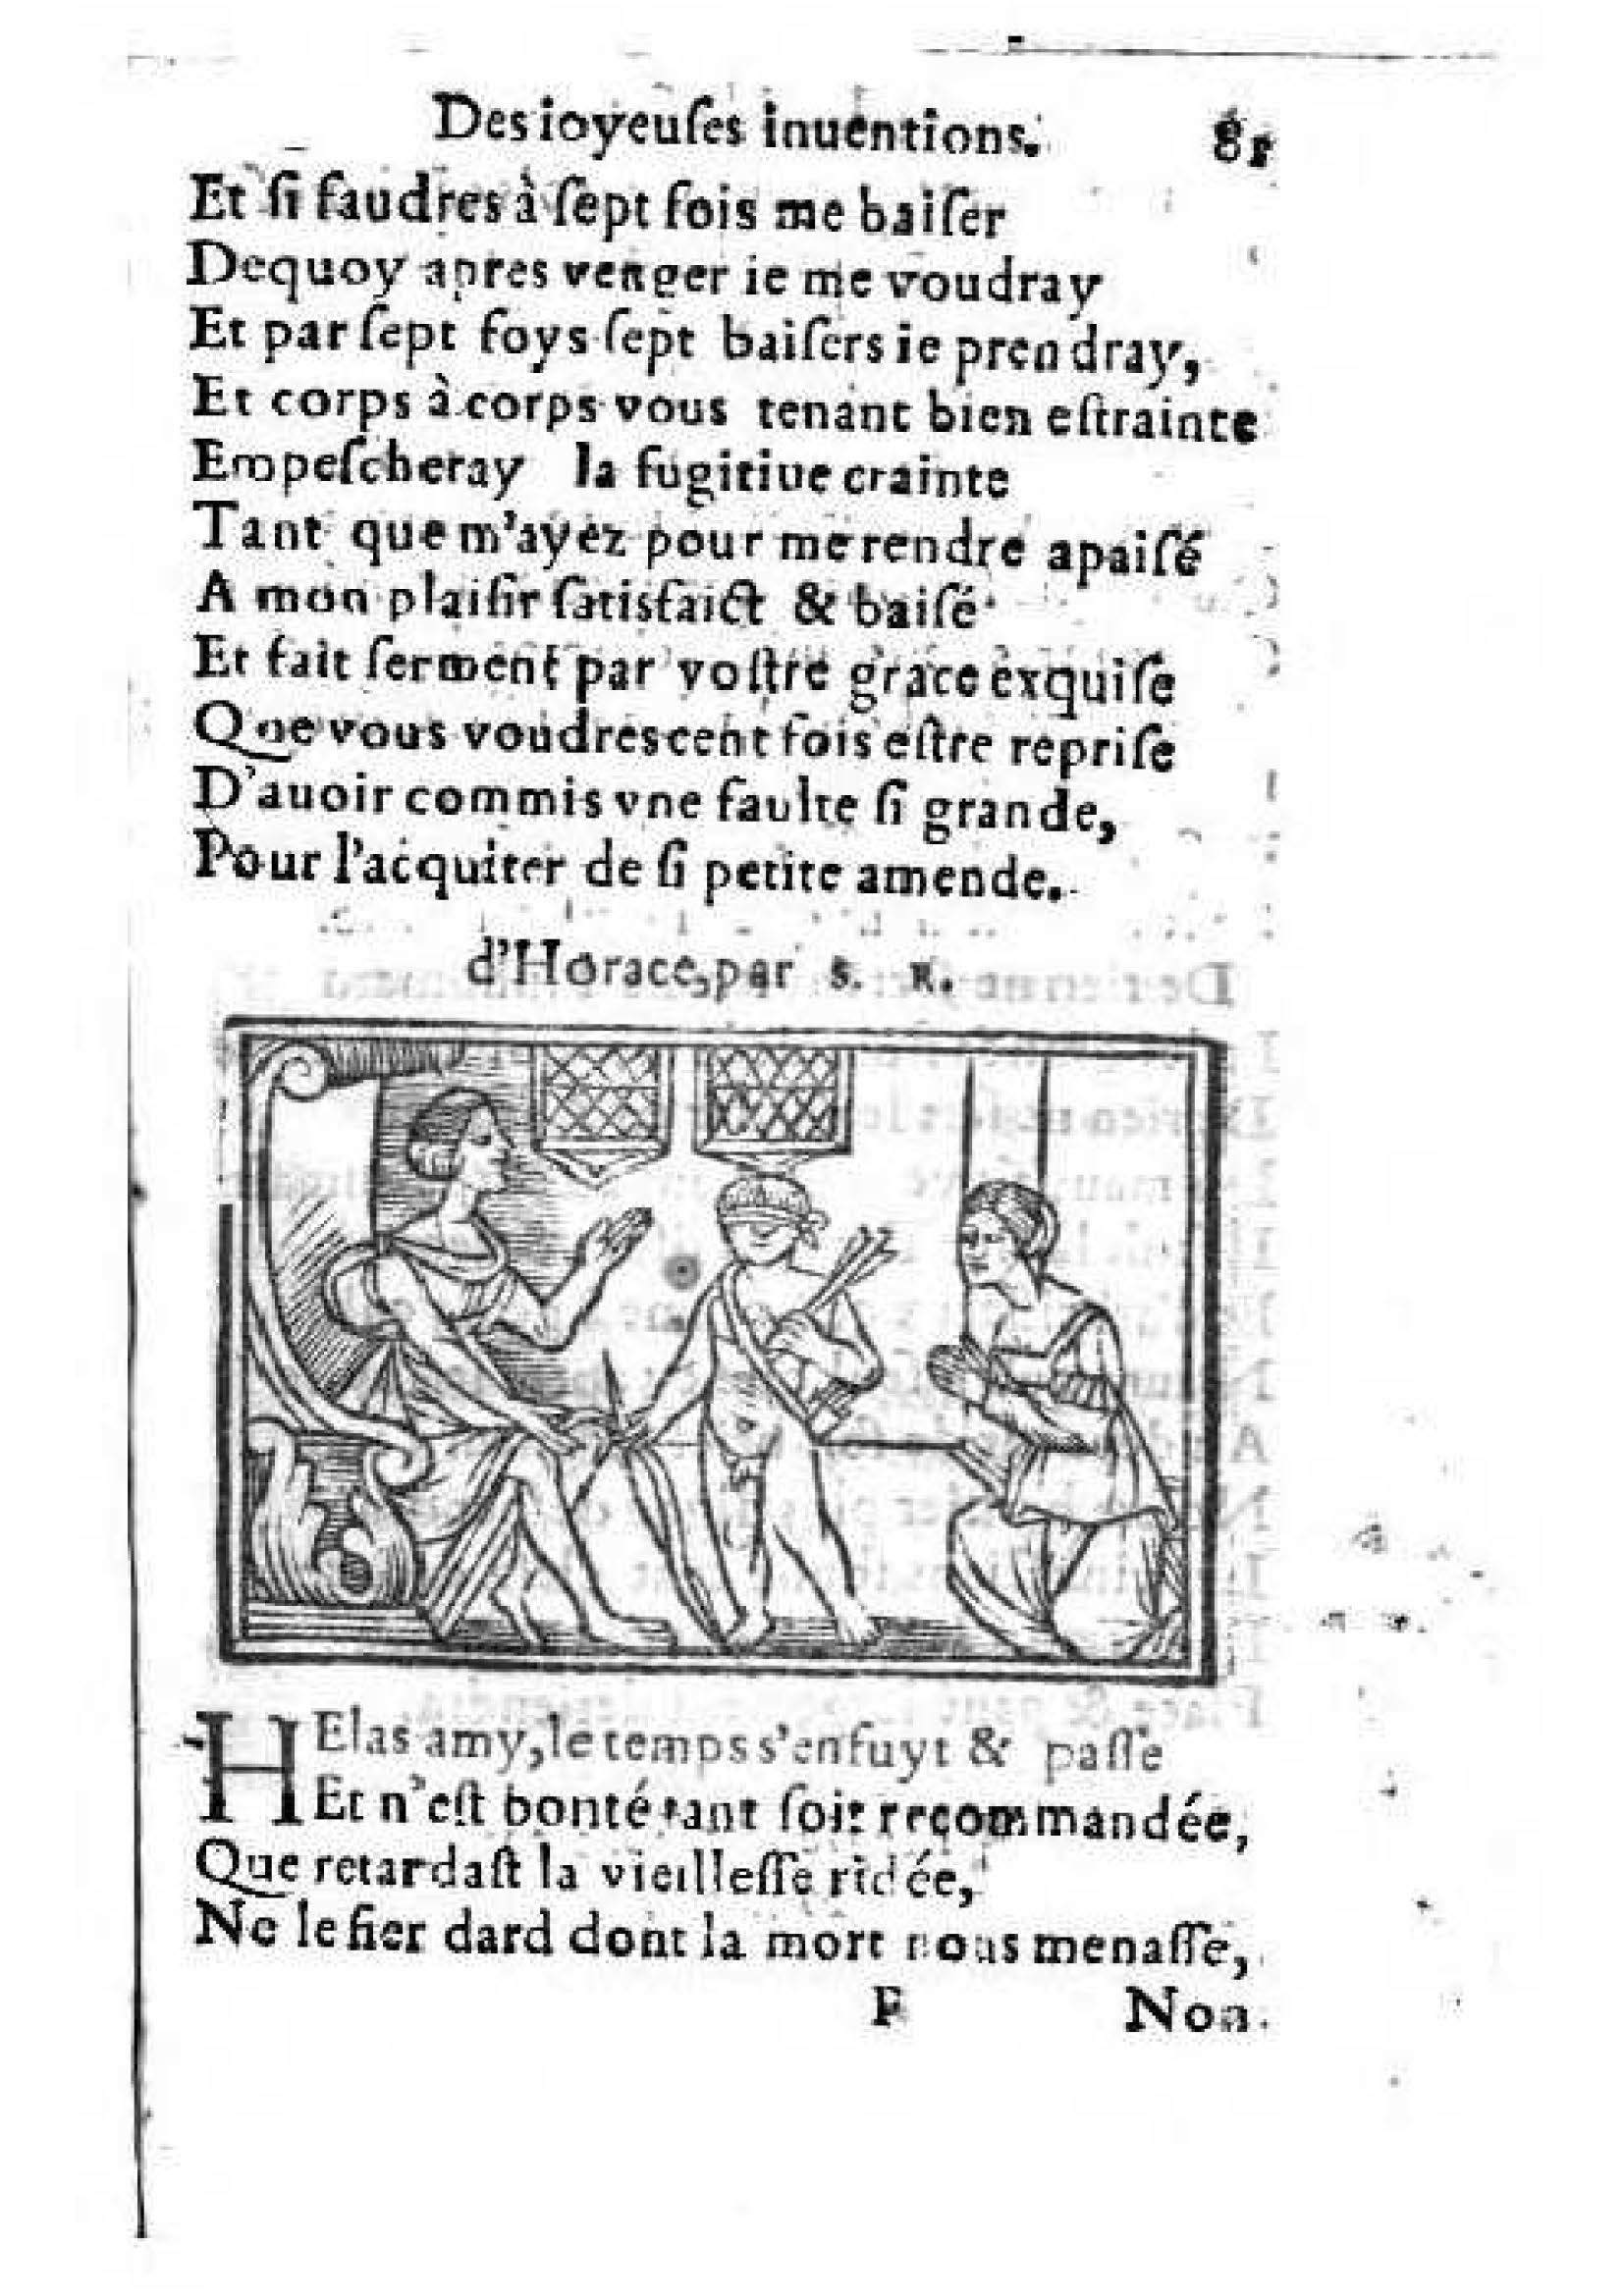 Des ioyeuſes inuentions. 81
Et ſi faudres à ſept fois me baiſer
Dequoy apres venger ie me voudray
Et par ſept foys ſept baiſers ie prendray,
Et corps à corps vous tenant bien eſtrainte
Empeſcheray la fugitiue crainte
Tant que m'ayez pour me rendre apaiſé
A mon plaiſir ſatisfaict & baiſé
Et fait ſerment par voſtre grace exquiſe
Que vous voudres cent fois eſtre repriſe
D'auoir commis vne faulte ſi grande,
Pour l'acquiter de ſi petite amende.
d'Horace, par S. R.
HElas amy, le temps s'enfuyt & paſſe
Et n'eſt bonté tant ſoit recommandée,
Que retardaſt la vieilleſſe ridée,
Ne le fier dard dont la mort nous menaſſe,
F Non.